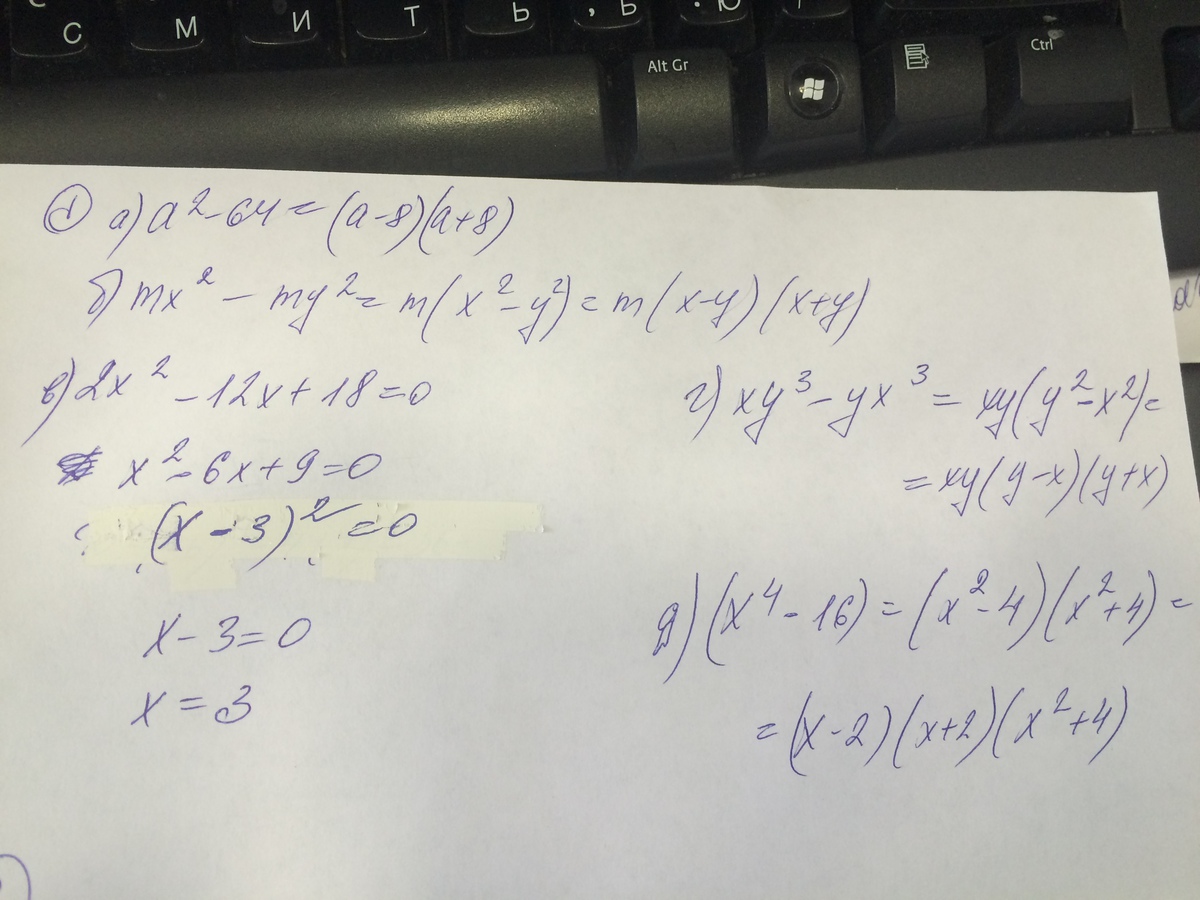 С М И Т Ь Б Ю
Alt Gr Ctrl
① а) a² - 64 = (a - 8)(a + 8)
б) mx² - my² = m(x² - y²) = m(x - y)(x + y)
в) 2x² - 12x + 18 = 0
x² - 6x + 9 = 0
(x - 3)² = 0
x - 3 = 0
x = 3
г) xy³ - yx³ = xy(y² - x²) =
= xy(y - x)(y + x)
д) (x⁴ - 16) = (x² - 4)(x² + 4) =
= (x - 2)(x + 2)(x² + 4)